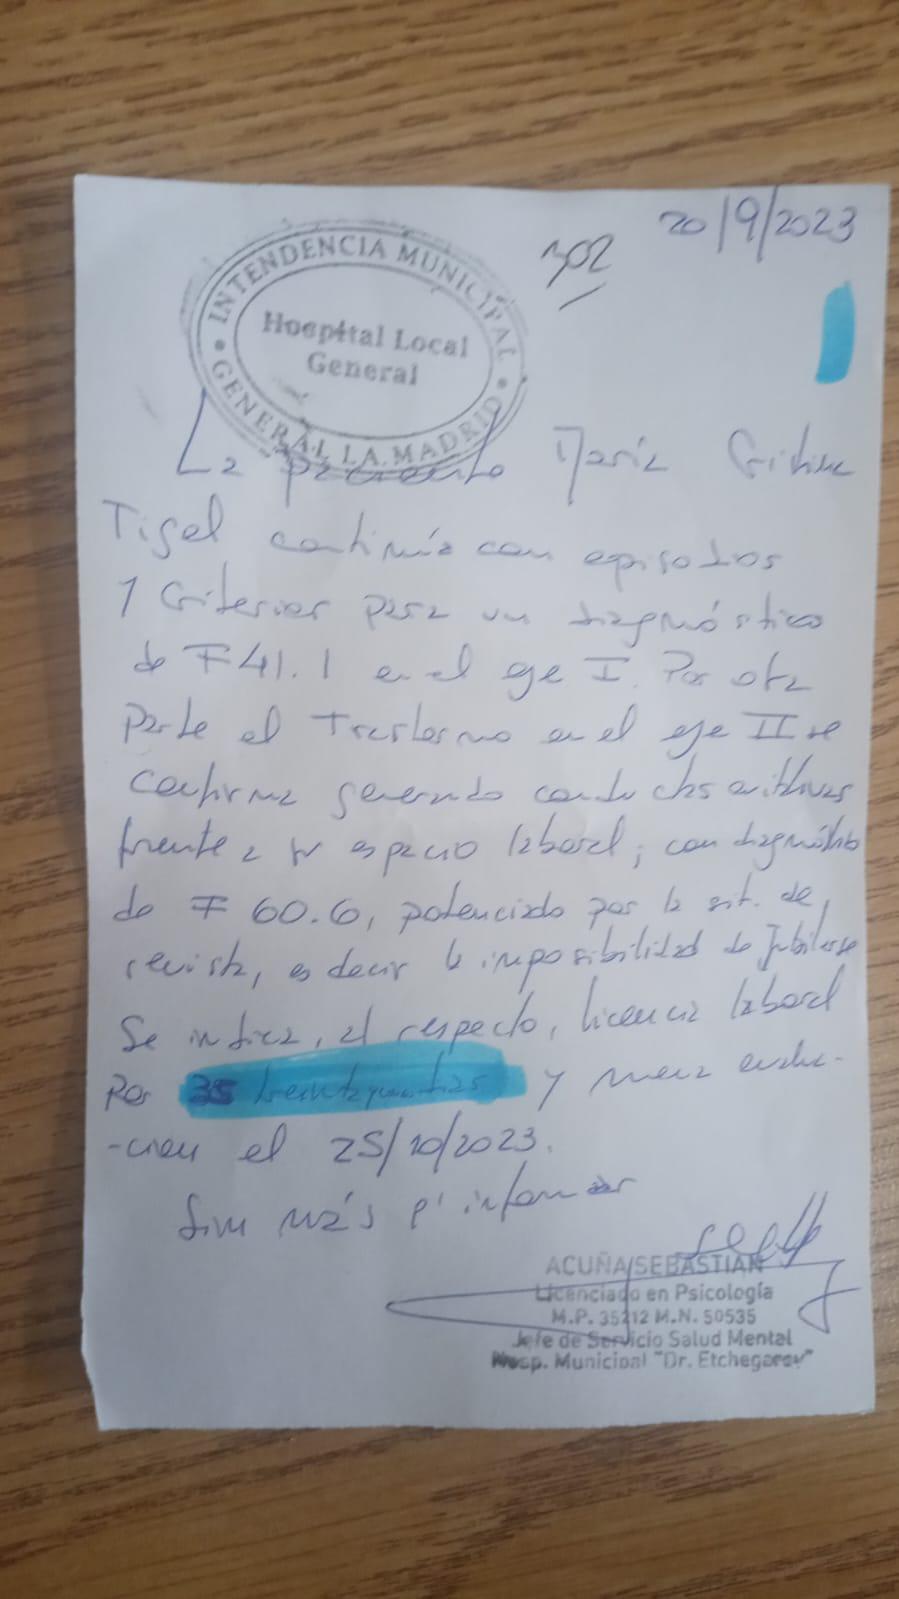 20/9/2023
INTENDENCIA MUNICIPAL
Hospital Local
General
GENERAL LA MADRID
La paciente María Cristina
Tisel continúa con episodios
y criterios para un diagnóstico
de F41.1 en el eje I. Por otra
parte el Trastorno en el eje II se
confirma generando conductas evitativas
frente a su espacio laboral, con diagnóstico
de F 60.6, potenciado por la sit. de
revista, es decir la imposibilidad de Jubilarse
Se indica, al respecto, licencia laboral
Por 35 días y nueva evalu-
-ción el 25/10/2023.
Sin más p' informar
ACUÑA SEBASTIAN
Licenciado en Psicología
M.P. 35212 M.N. 50535
Jefe de Servicio Salud Mental
Hosp. Municipal "Dr. Etchegaray"